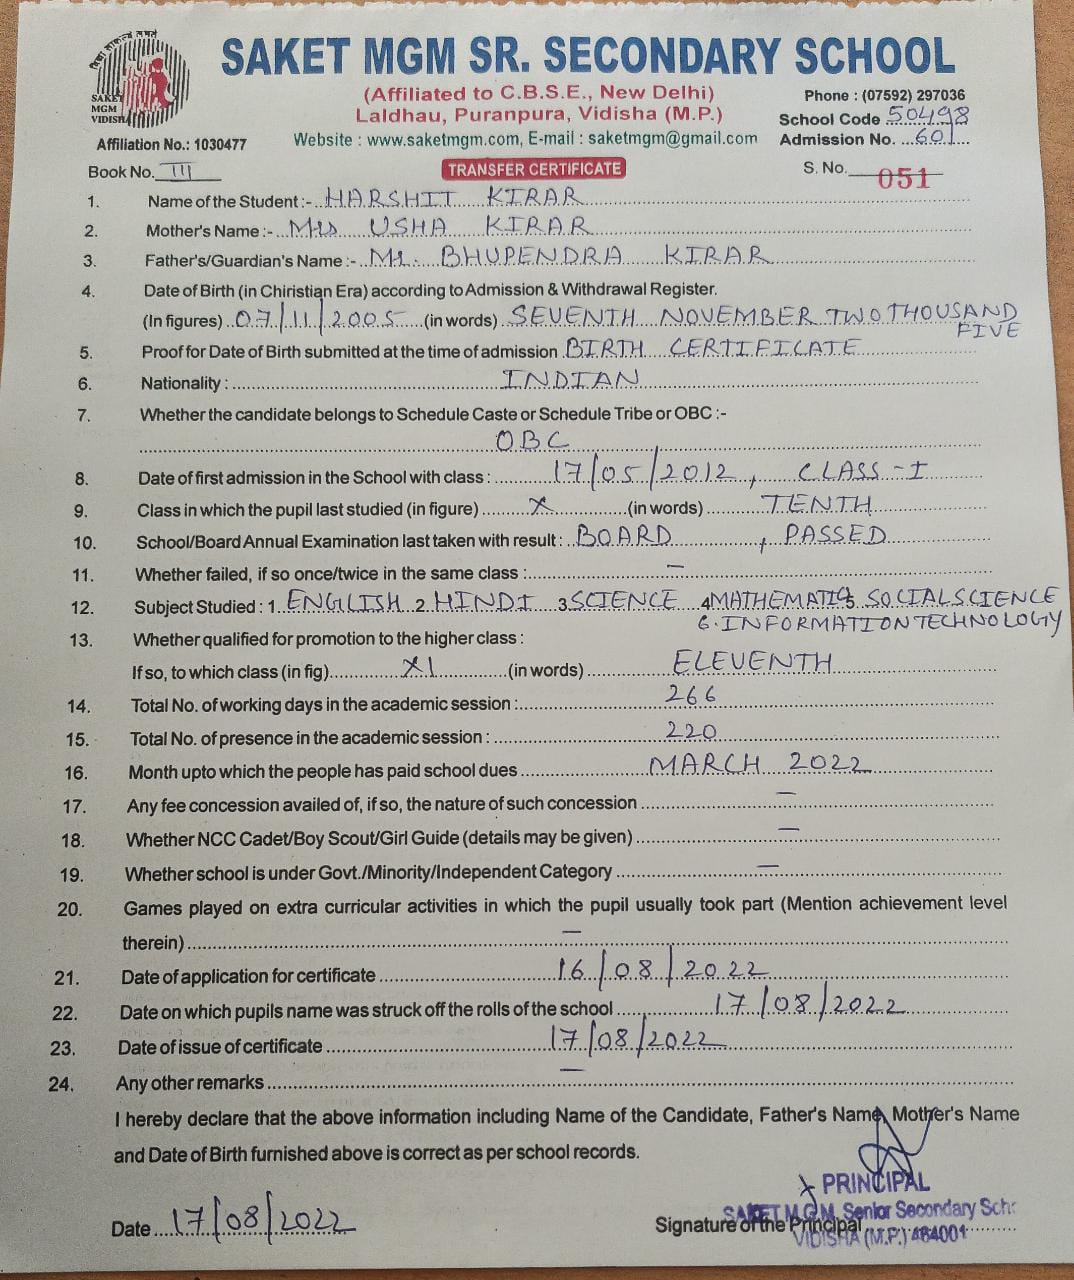 SAKET MGM VIDISHA
SAKET MGM SR. SECONDARY SCHOOL
(Affiliated to C.B.S.E., New Delhi)
Laldhau, Puranpura, Vidisha (M.P.)
Phone : (07592) 297036
School Code 50498
Website : www.saketmgm.com, E-mail : saketmgm@gmail.com
Admission No. ...601...
Affiliation No.: 1030477
Book No. III
TRANSFER CERTIFICATE
S. No. 051
1. Name of the Student :- HARSHIT KIRAR
2. Mother's Name :- Mrs USHA KIRAR
3. Father's/Guardian's Name :- Mr. BHUPENDRA KIRAR
4. Date of Birth (in Chiristian Era) according to Admission & Withdrawal Register.
(In figures) 07/11/2005 (in words) SEVENTH NOVEMBER TWO THOUSAND
FIVE
5. Proof for Date of Birth submitted at the time of admission BIRTH CERTIFICATE
6. Nationality : INDIAN
7. Whether the candidate belongs to Schedule Caste or Schedule Tribe or OBC :-
OBC
8. Date of first admission in the School with class : 17/05/2012, CLASS-I
9. Class in which the pupil last studied (in figure) X (in words) TENTH
10. School/Board Annual Examination last taken with result : BOARD, PASSED
11. Whether failed, if so once/twice in the same class : —
12. Subject Studied : 1. ENGLISH 2 HINDI 3 SCIENCE 4 MATHEMATICS 5 SOCIAL SCIENCE
6. INFORMATION TECHNOLOGY
13. Whether qualified for promotion to the higher class :
If so, to which class (in fig) XI (in words) ELEVENTH
14. Total No. of working days in the academic session : 266
15. Total No. of presence in the academic session : 220
16. Month upto which the people has paid school dues MARCH 2022
17. Any fee concession availed of, if so, the nature of such concession —
18. Whether NCC Cadet/Boy Scout/Girl Guide (details may be given) —
19. Whether school is under Govt./Minority/Independent Category —
20. Games played on extra curricular activities in which the pupil usually took part (Mention achievement level
therein) —
21. Date of application for certificate 16/08/2022
22. Date on which pupils name was struck off the rolls of the school 17/08/2022
23. Date of issue of certificate 17/08/2022
24. Any other remarks —
I hereby declare that the above information including Name of the Candidate, Father's Name, Mother's Name
and Date of Birth furnished above is correct as per school records.
PRINCIPAL
SAKET M.G.M. Senior Secondary Scho
Date 17/08/2022
Signature of the Principal
VIDISHA (M.P.) 464001